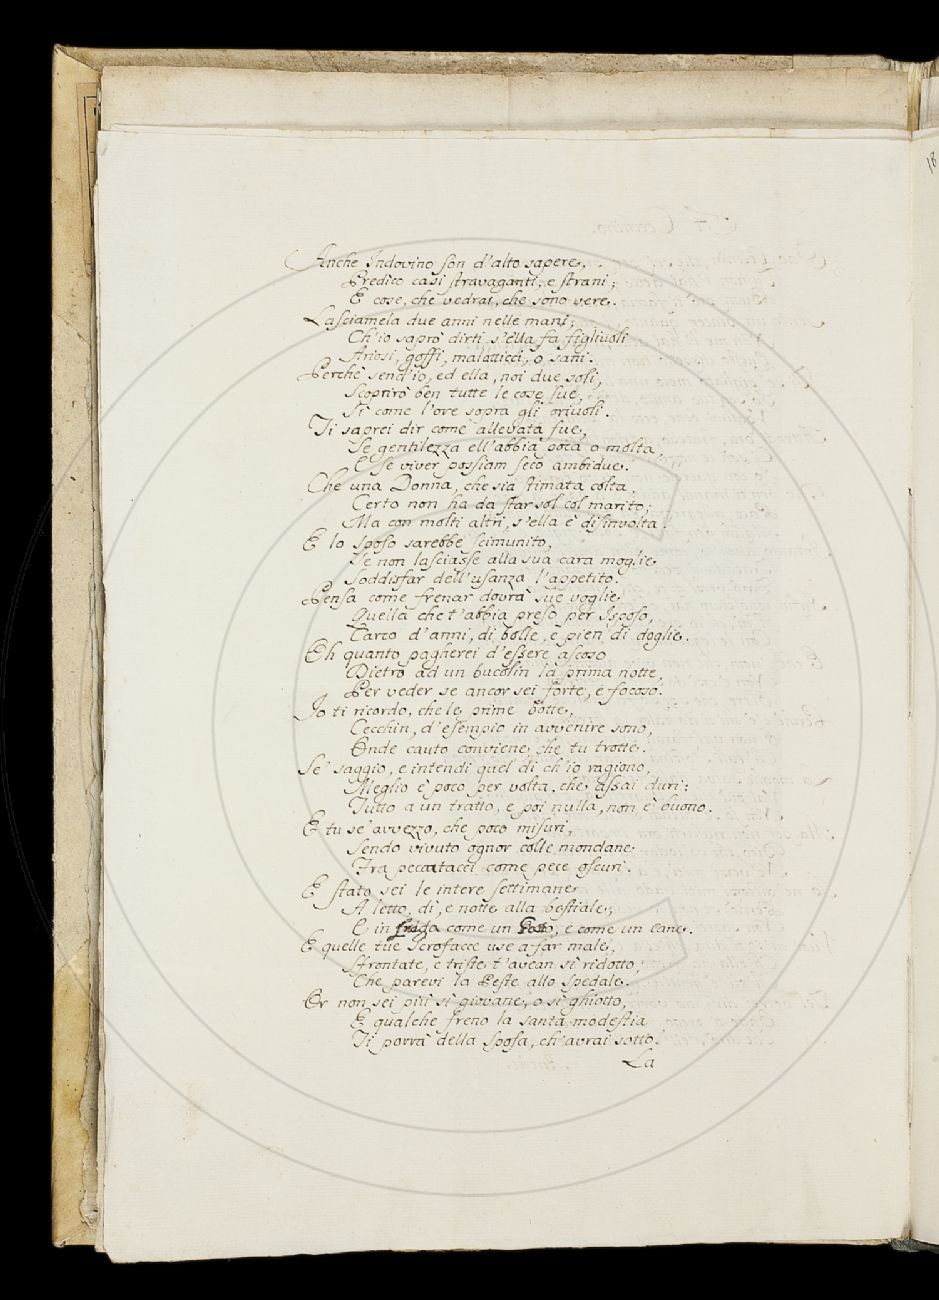 Anche Indovino son d'alto sapere,
Predico casi stravaganti, e strani;
E cose, che vedrai, che sono vere.
Lasciamela due anni nelle mani;
Ch'io saprò dirti s'ella fa figliuoli
Ariosi, goffi, malatticci, o sani.
Perchè send'io, ed ella, noi due soli,
Scoprirò ben tutte le cose sue,
Sì come l'ore sopra gli oriuoli.
Ti saprei dir come allevata fue,
Se gentilezza ell'abbia poca o molta,
E se viver possiam seco ambidue.
Che una Donna, che sia stimata colta,
Certo non ha da star sol col marito;
Ma con molti altri, s'ella è disinvolta.
E lo sposo sarebbe scimunito,
Se non lasciasse alla sua cara moglie
Soddisfar dell'usanza l'appetito.
Pensa come frenar dovrà sue voglie
Quella che t'abbia preso per Isposo,
Carco d'anni, di bolle, e pien di doglie.
Oh quanto pagherei d'essere ascoso
Dietro ad un bucolin la prima notte,
Per veder se ancor sei forte, e focoso.
Io ti ricordo, che le prime botte,
Cecchin, d'esempio in avvenire sono,
Onde cauto conviene che tu trotte.
Se' saggio, e intendi quel di ch'io ragiono,
Meglio è poco per volta, che assai duri:
Tutto a un tratto, e poi nulla, non è buono.
E tu se' avvezzo, che poco misuri,
Sendo vivuto ognor colle mondane
Fra peccatacci come pece oscuri.
E stato sei le intere settimane
A letto, dì, e notte alla bestiale;
E in come un, e come un cane.
E quelle tue Scrofacce use a far male,
Sfrontate, e triste t'avean sì ridotto,
Che parevi la Peste allo spedale.
Or non sei più sì giovane, o sì ghiotto,
E qualche freno la santa modestia
Ti porrà della sposa, ch'avrai sotto.
La
18